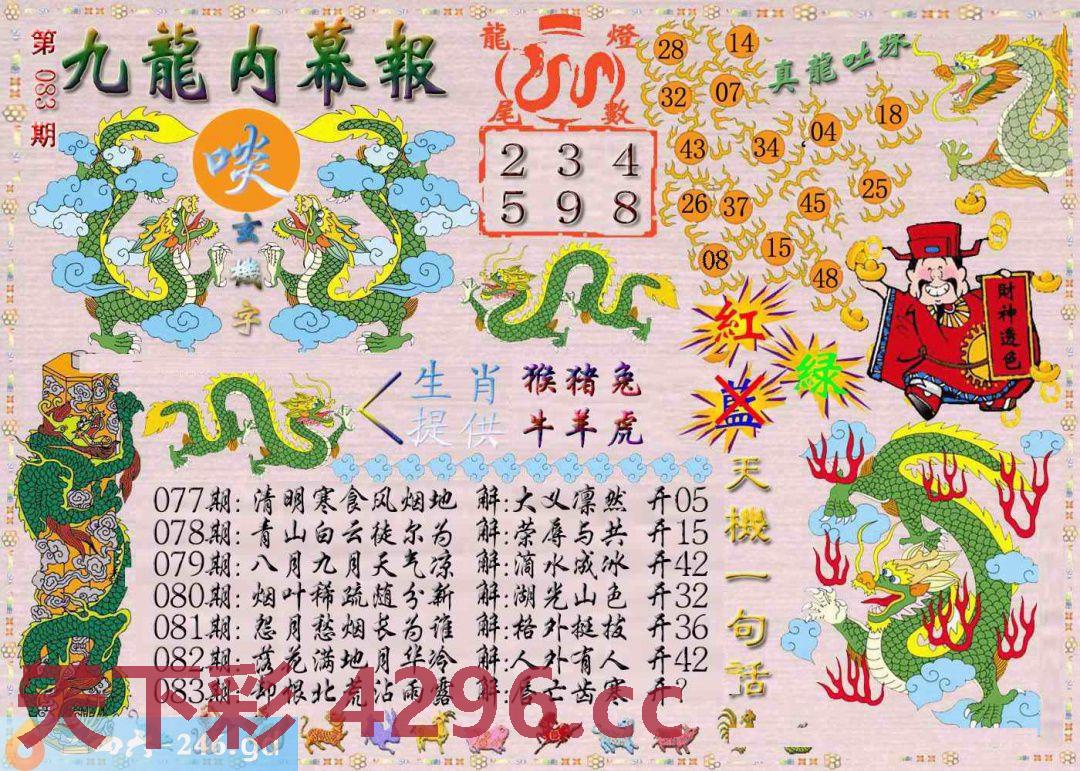 第083期
九龍内幕報
龍尾燈數
2 3 4
5 9 8
28 14
32 07
43 34 04 18
26 37 45 25
08 15 48
真龍吐珠
啖
玄機字
財神透色
紅
藍
緑
生肖提供
猴猪兔
牛羊虎
077期:清明寒食风烟地 解:大义凛然 开05
078期:青山白云徒尔为 解:荣辱与共 开15
079期:八月九月天气凉 解:滴水成冰 开42
080期:烟叶稀疏随分新 解:湖光山色 开32
081期:怨月愁烟长为谁 解:格外挺拔 开36
082期:落花满地月华冷 解:人外有人 开42
083期:却恨北荒沾雨露 解:唇亡齿寒 开?
天機一句話
天下彩 4296.cc
246.gd